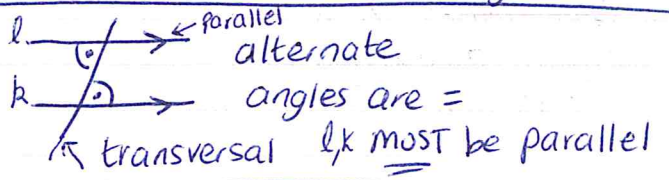 l parallel
alternate
k angles are =
transversal l,k MUST be parallel